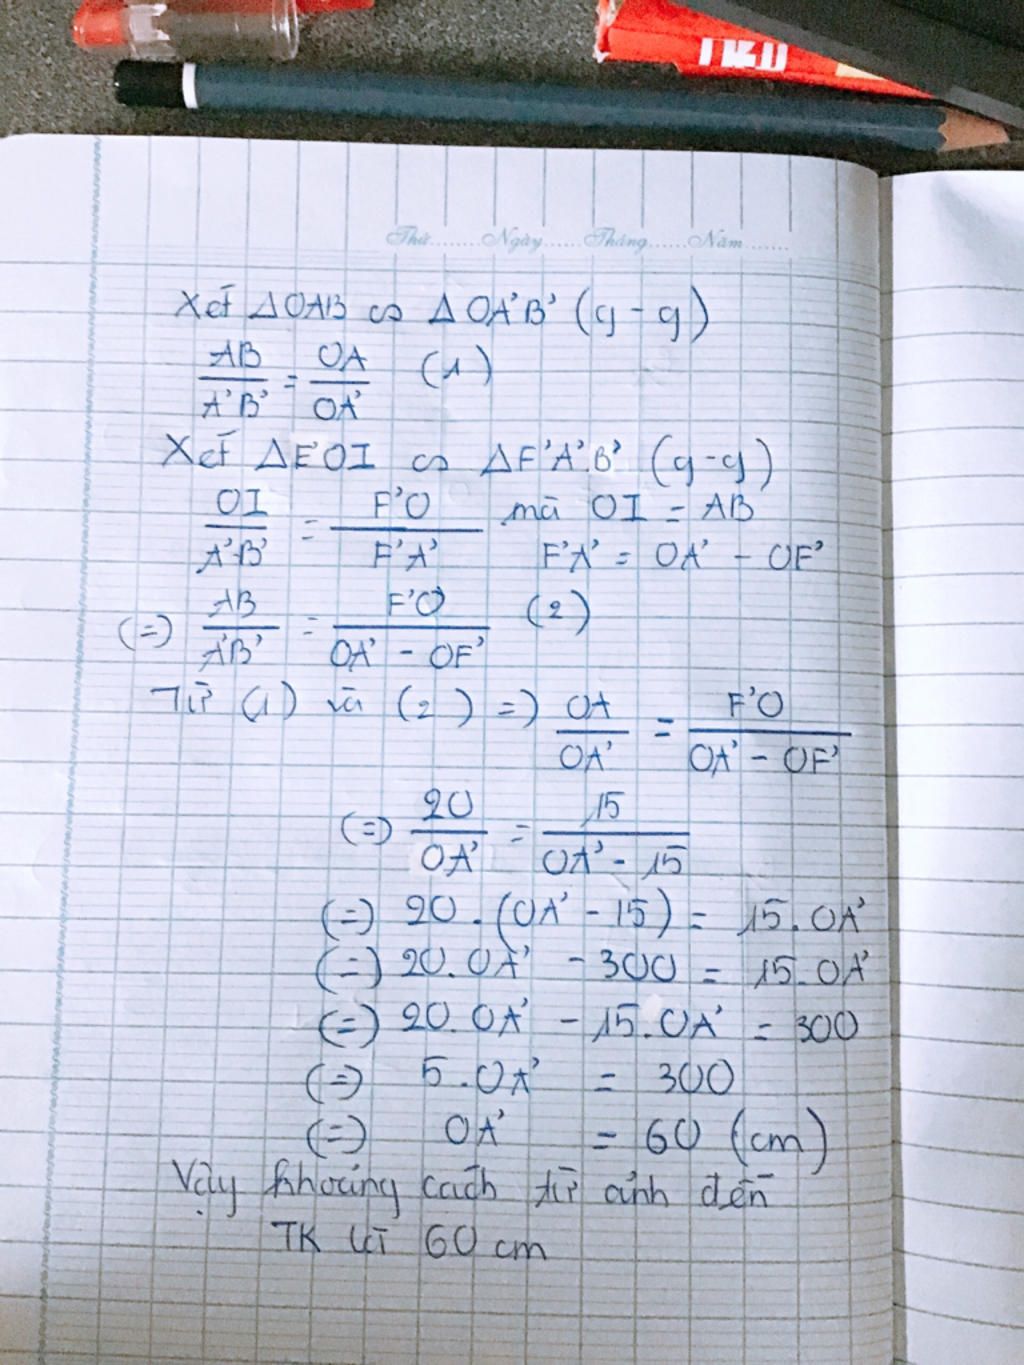 Thứ........Ngày.......Tháng.......Năm.......
Xét ΔOAB ∽ ΔOA'B' (g-g)
AB/A'B' = OA/OA' (1)
Xét ΔF'OI ∽ ΔF'A'B' (g-g)
OI/A'B' = F'O/F'A' mà OI = AB
F'A' = OA' - OF'
(=) AB/A'B' = F'O/(OA' - OF') (2)
Từ (1) và (2) =) OA/OA' = F'O/(OA' - OF')
(=) 20/OA' = 15/(OA' - 15)
(=) 20.(OA' - 15) = 15.OA'
(=) 20.OA' - 300 = 15.OA'
(=) 20.OA' - 15.OA' = 300
(=) 5.OA' = 300
(=) OA' = 60 (cm)
Vậy khoảng cách từ ảnh đến
TK là 60 cm